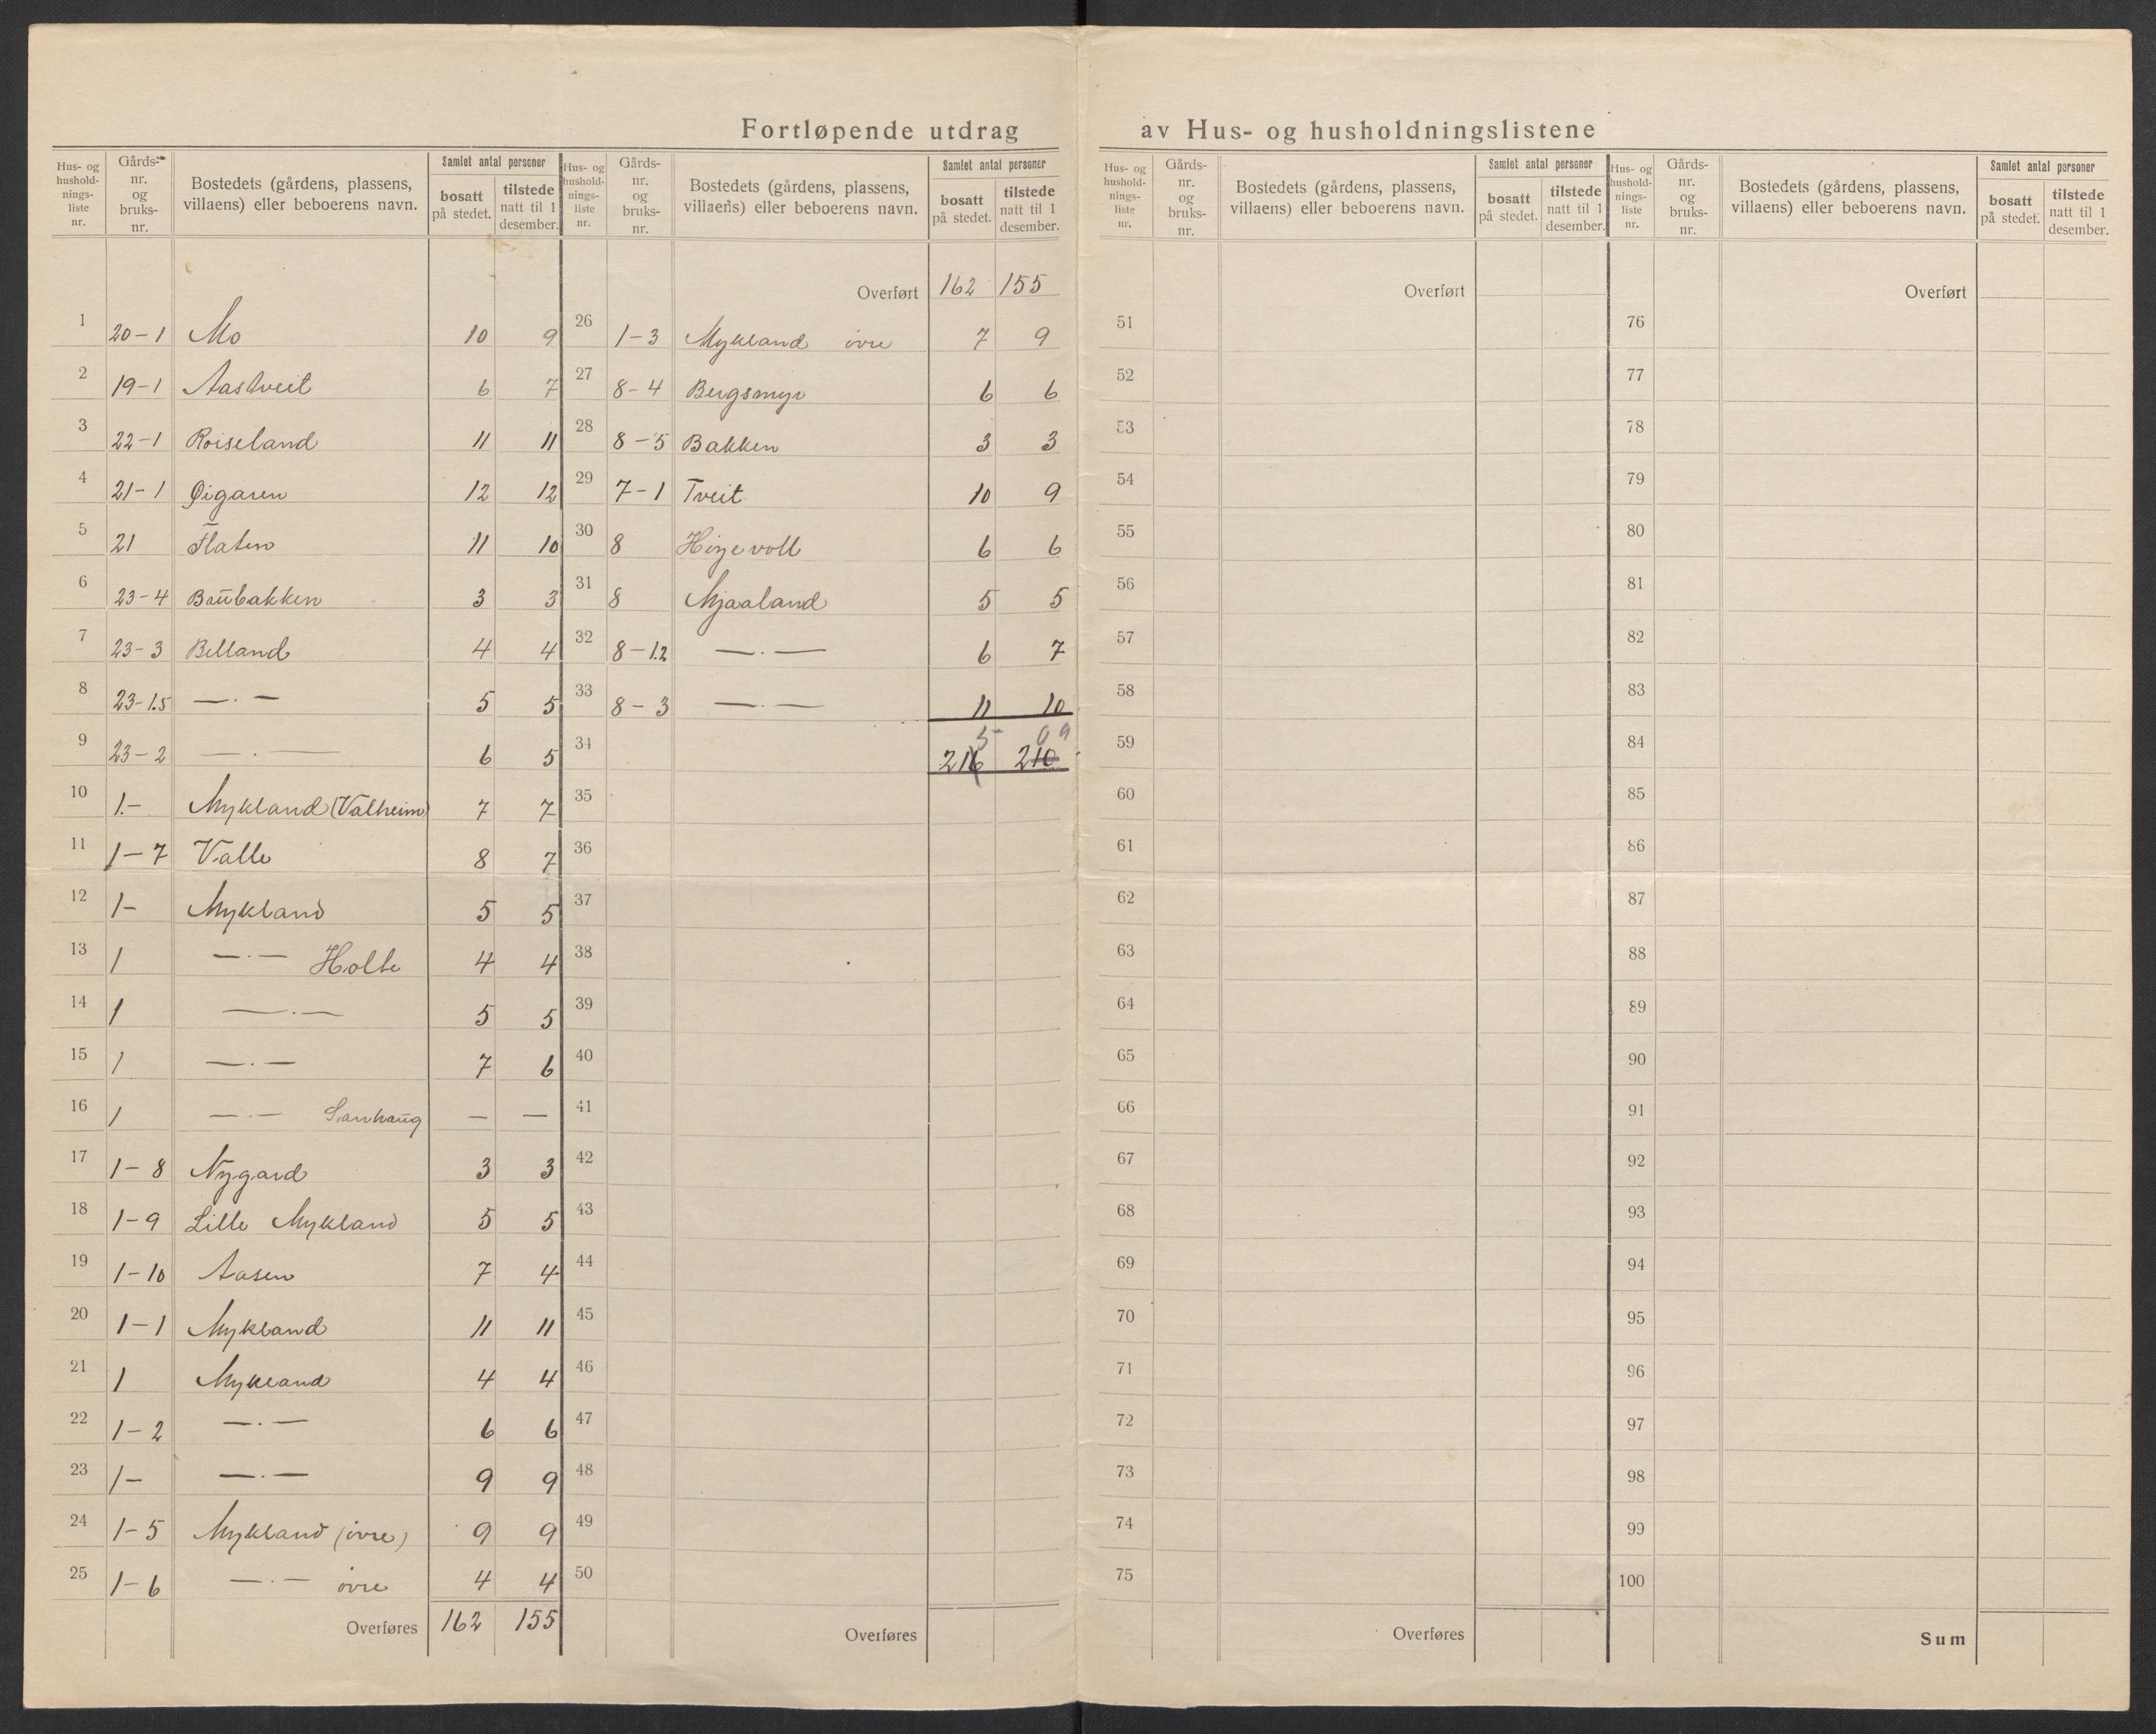 Fortløpende utdrag av Hus- og husholdningslistene
Hus- og husholdningsliste nr. | Gårds-nr. og bruks-nr. | Bostedets (gårdens, plassens, villaens) eller beboerens navn. | Samlet antal personer bosatt på stedet. | tilstede natt til 1 desember.
1 20-1 Mo 10 9
2 19-1 Aastveit 6 7
3 22-1 Roiseland 11 11
4 21-1 Øigaren 12 12
5 21 Flaten 11 10
6 23-4 Baŭbakken 3 3
7 23-3 Belland 4 4
8 23-1.5 —.— 5 5
9 23-2 —.— 6 5
10 1.- Mykland (Valheim) 7 7
11 1-7 Valle 8 7
12 1- Mykland 5 5
13 1 —.— Holte 4 4
14 1 —.— 5 5
15 1 —.— 7 6
16 1 —.— Sanhaŭg — —
17 1-8 Nygard 3 3
18 1-9 Lille Mykland 5 5
19 1-10 Aasen 7 4
20 1-1 Mykland 11 11
21 1 Mykland 4 4
22 1-2 —.— 6 6
23 1- —.— 9 9
24 1-5 Mykland (øvre) 9 9
25 1-6 —.— øvre 4 4
Overføres 162 155
Hus- og husholdningsliste nr. | Gårds-nr. og bruks-nr. | Bostedets (gårdens, plassens, villaens) eller beboerens navn. | Samlet antal personer bosatt på stedet. | tilstede natt til 1 desember.
Overført 162 155
26 1-3 Mykland øvre 7 9
27 8-4 Bergsmyr 6 6
28 8-5 Bakken 3 3
29 7-1 Tveit 10 9
30 8 Høgevoll 6 6
31 8 Mjaaland 5 5
32 8-1.2 —.— 6 7
33 8-3 —.— 11 10
5 09
34 216 210
35
36
37
38
39
40
41
42
43
44
45
46
47
48
49
50
Overføres
Hus- og husholdningsliste nr. | Gårds-nr. og bruks-nr. | Bostedets (gårdens, plassens, villaens) eller beboerens navn. | Samlet antal personer bosatt på stedet. | tilstede natt til 1 desember.
Overført
51
52
53
54
55
56
57
58
59
60
61
62
63
64
65
66
67
68
69
70
71
72
73
74
75
Overføres
Hus- og husholdningsliste nr. | Gårds-nr. og bruks-nr. | Bostedets (gårdens, plassens, villaens) eller beboerens navn. | Samlet antal personer bosatt på stedet. | tilstede natt til 1 desember.
Overført
76
77
78
79
80
81
82
83
84
85
86
87
88
89
90
91
92
93
94
95
96
97
98
99
100
Sum